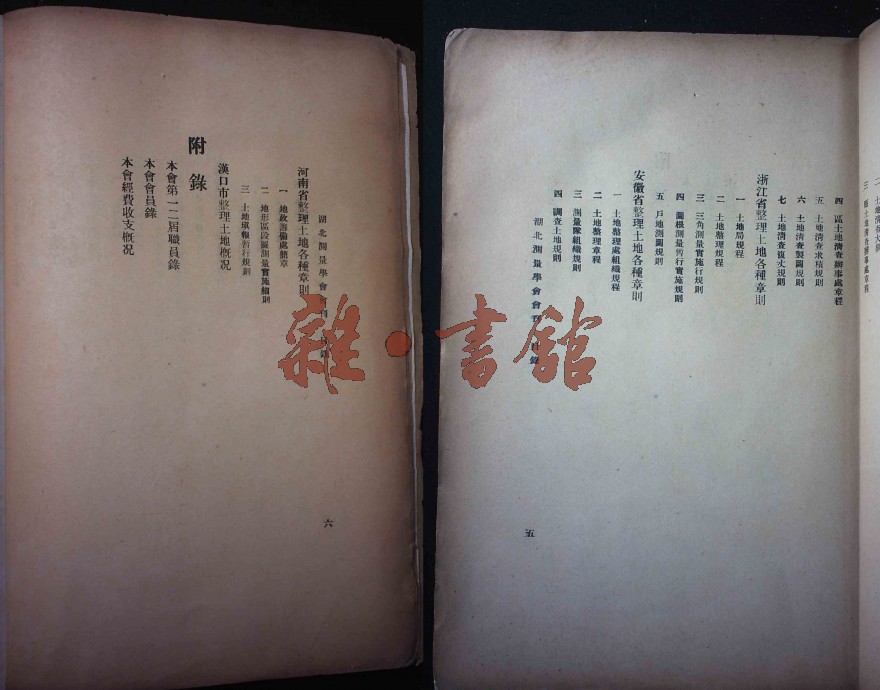 三 縣土地清查辦事處章程
四 區土地清查辦事處章程
五 土地清查求積規則
六 土地清查製圖規則
七 土地清查復丈規則
浙江省整理土地各種章則
一 土地局規程
二 土地整理規程
三 三角測量實施行規則
四 圖根測量暫行實施規則
五 戶地測圖規則
安徽省整理土地各種章則
一 土地整理處組織規程
二 土地整理章程
三 測量隊組織規則
四 調查土地規則
湖北測量學會會刊 目錄
五
湖北測量學會會刊 目錄
六
河南省整理土地各種章則
一 地政籌備處簡章
二 地形區段圖測量實施細則
三 土地承報暫行規則
漢口市整理土地概况
附錄
本會第一二屆職員錄
本會會員錄
本會經費收支概况
雜·書館